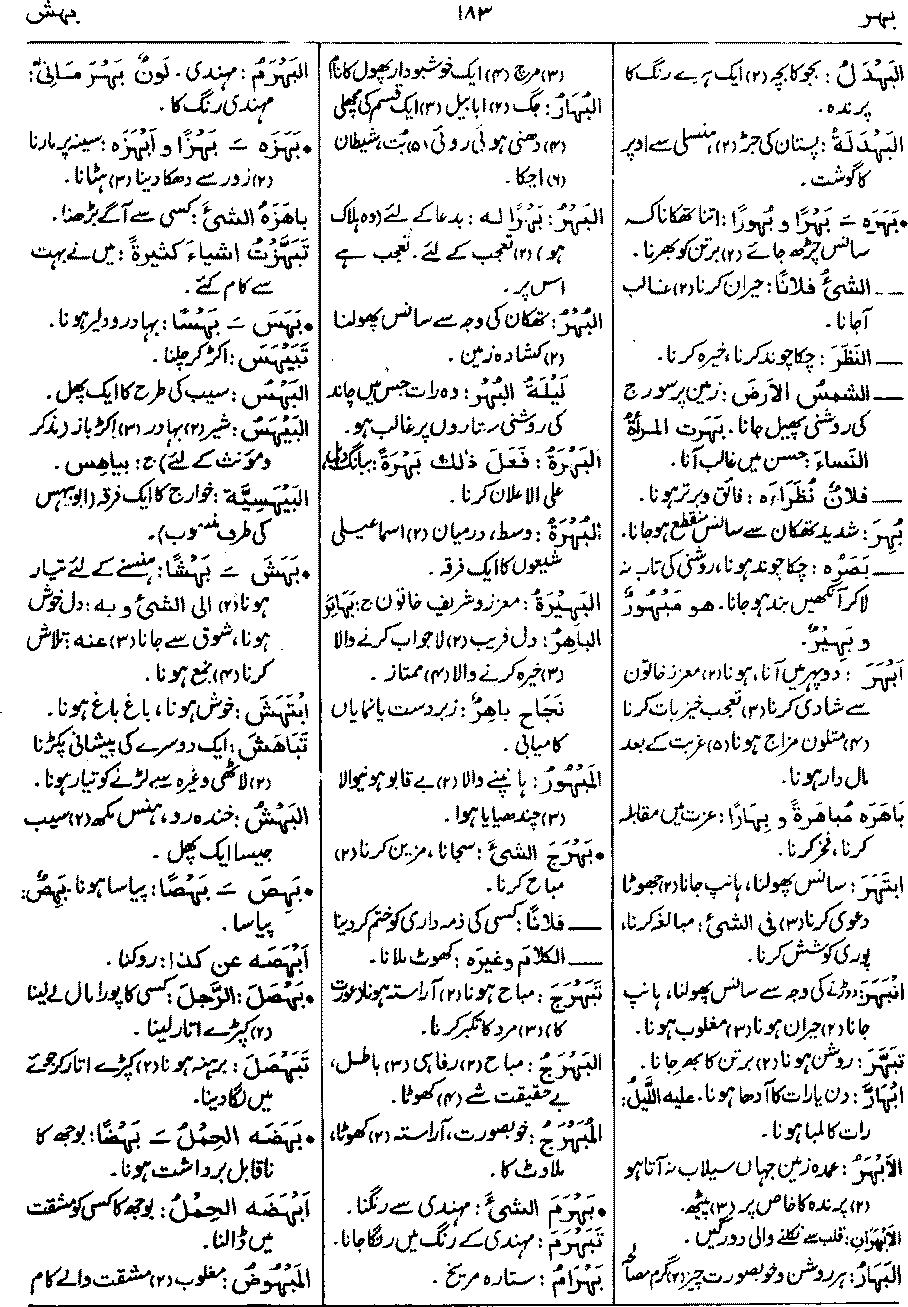 بہر
۱۸۳
بہش
البَهْدَلُ : بجو کا بچہ (۲) ایک ہرے رنگ کا
پرندہ ۔
البَهْدَلَةُ : پستان کی جڑ (۲) ہنسلی سے اوپر
کا گوشت ۔
• بَهَرَه ـَ بَهْرًا و بُهُورًا : اتنا تھکانا کہ
سانس چڑھ جائے (۲) برتن کو بھرنا۔
ــ الشئُ فلانًا : حیران کرنا (۲) غالب
آجانا ۔
ــ النَّظَرَ : چکاچوند کرنا ، خیرہ کرنا ۔
ــ الشمسُ الأرضَ : زمین پر سورج
کی روشنی پھیل جانا ۔ بَهَرَت المرأةُ
النساءَ : حسن میں غالب آنا ۔
ــ فلانٌ نُظَرَاءَه : فائق و برتر ہونا ۔
بُهِرَ : شدید تھکان سے سانس منقطع ہوجانا ۔
ــ بَصَرُه : چکاچوند ہونا ، روشنی کی تاب نہ
لاکر آنکھیں بند ہو جانا ۔ هو مَبْهُورٌ
و بَهِيرٌ ۔
أَبْهَرَ : دوپہر میں آنا ، ہونا (۲) معزز خاتون
سے شادی کرنا (۳) تعجب خیز بات کرنا
(۴) متلون مزاج ہونا (۵) غربت کے بعد
مال دار ہونا ۔
بَاهَرَه مُبَاهَرَةً و بِهَارًا : عزت میں مقابلہ
کرنا ، فخر کرنا ۔
ابتَهَرَ : سانس پھولنا ، ہانپ جانا (۲) جھوٹا
دعوی کرنا (۳) فى الشئ : مبالغہ کرنا ،
پوری کوشش کرنا ۔
انْبَهَرَ : دوڑنے کی وجہ سے سانس پھولنا ، ہانپ
جانا (۲) حیران ہونا (۳) مغلوب ہونا ۔
تَبَهَّرَ : روشن ہونا (۲) برتن کا بھر جانا ۔
ابْهَارَّ : دن یا رات کا آدھا ہونا ۔ عليه اللَّيلُ :
رات کا لمبا ہونا ۔
الأَبْهَرُ : عمدہ زمین جہاں سیلاب نہ آتا ہو
(۲) پرندہ کا خاص پر (۳) پیٹھ ۔
الأَبْهَرَانِ : قلب سے نکلنے والی دو رگیں ۔
البَهَارُ : ہر روشن و خوبصورت چیز (۲) گرم مصالحہ
(۳) مرچ (۴) ایک خوشبودار پھول کا نام
البُهَارُ : جگ (۲) ابابیل (۳) ایک قسم کی مچھلی
(۴) دھنی ہوئی روئی (۵) بُت ، شیطان
(۶) اچکا ۔
البَهْرُ : بَهْرًا له : بد دعا کے لئے (وہ ہلاک
ہو) (۲) تعجب کے لئے ۔ تعجب ہے
اس پر ۔
البُهْرُ : تھکان کی وجہ سے سانس پھولنا
(۲) کشادہ زمین ۔
لَيْلَةُ البُهْرِ : وہ رات جس میں چاند
کی روشنی ستاروں پر غالب ہو ۔
البَهْرَةُ : فَعَلَ ذٰلك بَهْرَةً : ببانگ دہل ،
علی الاعلان کرنا ۔
البُهْرَةُ : وسط ، درمیان (۲) اسماعیلی
شیعوں کا ایک فرقہ ۔
البَهِيْرَةُ : معزز و شریف خاتون ج : بَهَائِرُ
الباهِرُ : دل فریب (۲) لاجواب کرنے والا
(۳) خیرہ کرنے والا (۴) ممتاز ۔
نَجَاح باهِرٌ : زبردست یا نمایاں
کامیابی ۔
المَبْهُورُ : ہانپنے والا (۲) بے قابو ہونیوالا
(۳) چندھیایا ہوا ۔
• بَهْرَجَ الشئَ : سجانا ، مزین کرنا (۲)
مباح کرنا ۔
ــ فلانًا : کسی کی ذمہ داری کو ختم کر دینا
ــ الكلامَ وغيره : کھوٹ ملانا ۔
تَبَهْرَجَ : مباح ہونا (۲) آراستہ ہونا (عورت
کا) (۳) مرد کا تکبر کرنا ۔
البَهْرَجُ : مباح (۲) رفاہی (۳) باطل ،
بے حقیقت شے (۴) کھوٹا ۔
المُبَهْرَجُ : خوبصورت ، آراستہ (۲) کھوٹا ،
ملاوٹ کا ۔
• بَهْرَمَ الشئَ : مہندی سے رنگنا ۔
تَبَهْرَمَ : مہندی کے رنگ میں رنگا جانا ۔
بَهْرَامُ : ستارہ مریخ ۔
البَهْرَمُ : مہندی ۔ لونٌ بَهْرَمَانىٌّ :
مہندی رنگ کا ۔
• بَهَزَه ـَ بَهْزًا و أَبْهَزَه : سینہ پر مارنا
(۲) زور سے دھکا دینا (۳) ہٹانا ۔
باهَزَهُ الشئَ : کسی سے آگے بڑھنا ۔
تَبَهَّزْتُ اشياءَ كثيرةً : میں نے بہت
سے کام کئے ۔
• بَهَسَ ـَ بَهْسًا : بہادر و دلیر ہونا ۔
تَبَيْهَسَ : اکڑ کر چلنا ۔
البَهْسُ : سیب کی طرح کا ایک پھل ۔
البَيْهَسُ : شیر (۲) بہادر (۳) اکڑباز (مذکر
و مؤنث کے لئے) ج : بياهِس ۔
البَيْهَسِيَّة : خوارج کا ایک فرقہ (ابو بیہس
کی طرف منسوب) ۔
• بَهَشَ ـَ بَهْشًا : ہنسنے کے لئے تیار
ہونا (۲) الى الشئ و به : دل خوش
ہونا ، شوق سے جانا (۳) عنه : تلاش
کرنا (۴) جمع ہونا ۔
ابْتَهَشَ : خوش ہونا ، باغ باغ ہونا ۔
تَبَاهَشَ : ایک دوسرے کی پیشانی پکڑنا
(۲) لاٹھی وغیرہ سے لڑنے کو تیار ہونا ۔
البَهْشُ : خندہ رو ، ہنس مکھ (۲) سیب
جیسا ایک پھل ۔
• بَهِصَ ـَ بَهَصًا : پیاسا ہونا بَهِصٌ :
پیاسا ۔
أَبْهَصَه عن كذا : روکنا ۔
• بَهْصَلَ : الرَّجلَ : کسی کا پورا مال لے لینا
(۲) کپڑے اتار لینا ۔
تَبَهْصَلَ : برہنہ ہونا (۲) کپڑے اتار کر جوئے
میں لگا دینا ۔
• بَهَضَه الحِمْلُ ـَ بَهْضًا : بوجھ کا
ناقابل برداشت ہونا ۔
أَبْهَضَه الحِمْلُ : بوجھ کا کسی کو مشقت
میں ڈالنا ۔
المَبْهُوضُ : مغلوب (۲) مشقت والے کام